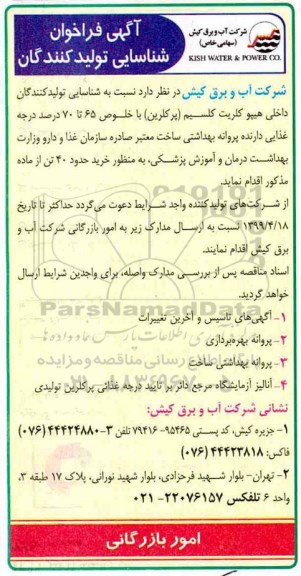 شرکت آب و برق کیش
(سهامی خاص)
KISH WATER & POWER CO.
آگهی فراخوان
شناسایی تولیدکنندگان
شرکت آب و برق کیش در نظر دارد نسبت به شناسایی تولیدکنندگان
داخلی هیپو کلریت کلسیم (پرکلرین) با خلوص ۶۵ تا ۷۰ درصد درجه
غذایی دارنده پروانه بهداشتی ساخت معتبر صادره سازمان غذا و دارو وزارت
بهداشت درمان و آموزش پزشکی، به منظور خرید حدود ۴۰ تن از ماده
مذکور اقدام نمایند.
از شرکت‌های تولیدکننده واجد شرایط دعوت می‌گردد حداکثر تا تاریخ
۱۳۹۹/۴/۱۸ نسبت به ارسال مدارک زیر به امور بازرگانی شرکت آب و
برق کیش اقدام نمایند.
اسناد مناقصه پس از بررسی مدارک واصله، برای واجدین شرایط ارسال
خواهد گردید.
۱- آگهی‌های تاسیس و آخرین تغییرات
۲- پروانه بهره‌برداری
۳- پروانه بهداشتی ساخت
۴- آنالیز آزمایشگاه مرجع دائر بر تایید درجه غذائی پرکلرین تولیدی
نشانی شرکت آب و برق کیش:
۱- جزیره کیش، کد پستی ۹۵۴۶۵-۷۹۴۱۶ تلفن ۳-۴۴۴۲۴۸۸۰ (۰۷۶)
فاکس: ۴۴۴۲۳۸۱۸ (۰۷۶)
۲- تهران- بلوار شهید فرحزادی، بلوار شهید نورانی، پلاک ۱۷ طبقه ۳،
واحد ۶ تلفکس ۲۲۰۷۶۱۵۷- ۰۲۱
امور بازرگانی
ParsNamadData